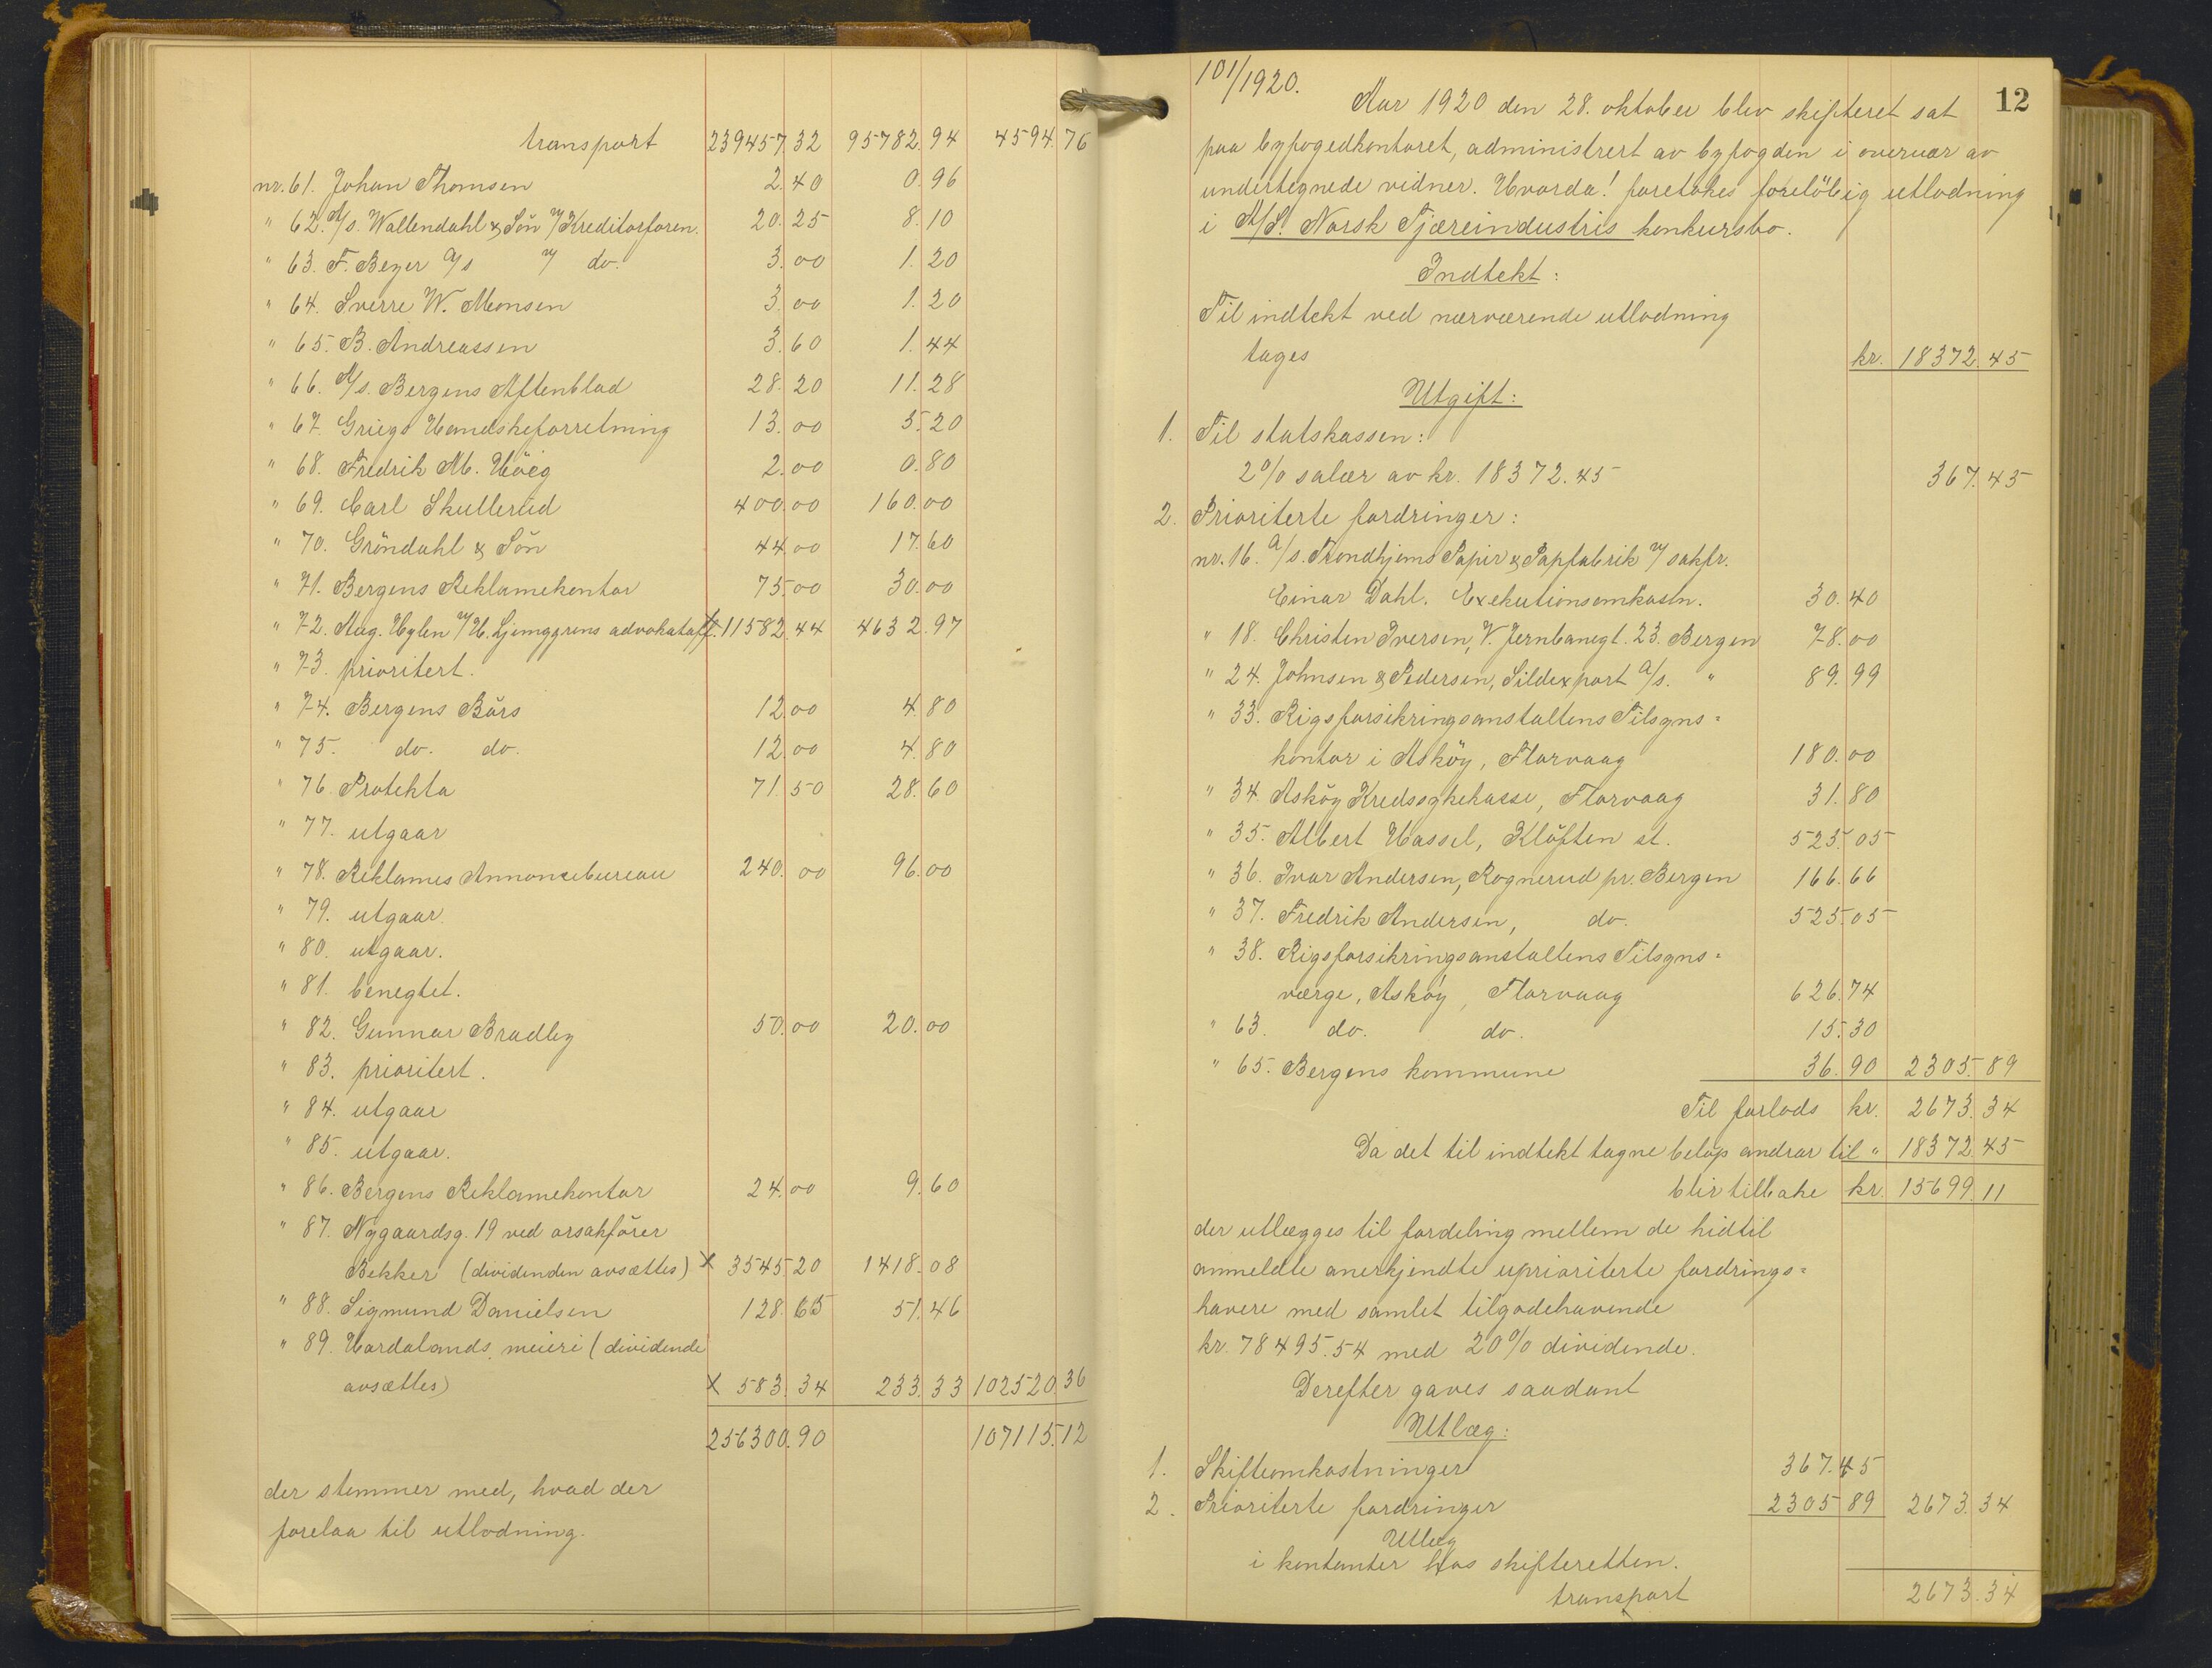 transport 239457.32 95782.94 4594.76
nr. 61. Johan Thomsen 2.40 0.96
" 62. A/s. Wallendahl & Sön v/ Kreditorforen. 20.25 8.10
" 63. F. Beyer A/s v/ do. 3.00 1.20
" 64. Sverre W. Monsen 3.00 1.20
" 65. B. Andreassen 3.60 1.44
" 66. A/s. Bergens Aftenblad 28.20 11.28
" 67. Griegs Handskeforretning 13.00 5.20
" 68. Fredrik M. Höeg 2.00 0.80
" 69. Carl Skullerud 400.00 160.00
" 70. Gröndahl & Sön 44.00 17.60
" 71. Bergens Reklamekontor 75.00 30.00
" 72. Aug. Hylen v/ H. Ljunggrens advokataff. 11582.44 4632.97
" 73. prioritert.
" 74. Bergens Börs 12.00 4.80
" 75. do. do. 12.00 4.80
" 76. Protekta 71.50 28.60
" 77. utgaar
" 78. Reklames Annoncebureau 240.00 96.00
" 79. utgaar.
" 80. utgaar.
" 81. benegtet.
" 82. Gunnar Bradley 50.00 20.00
" 83. prioritert.
" 84. utgaar
" 85. utgaar.
" 86. Bergens Reklamekontor 24.00 9.60
" 87. Nygaardsg. 19 ved orsakförer
Bekker (dividenden avsættes) x 3545.20 1418.08
" 88. Sigmund Danielsen 128.65 51.46
" 89. Hordalands meieri (dividende
avsættes) x 583.34 233.33 102520.36
256300.90 107115.12
der stemmer med, hvad der
forelaa til utlodning.
101/1920. 12
Aar 1920 den 28. oktober blev skifteret sat
paa byfogedkontoret, administrert av byfogden i overvær av
undertegnede vidner. Hvorda! foretokes foreløbig utlodning
i A/S. Norsk Tjæreindustris konkursbo.
Indtekt:
Til indtekt ved nærværende utlodning
tages kr. 18372.45
Utgift:
1. Til statskassen:
2% salær av kr. 18372.45 367.45
2. Prioriterte fordringer:
nr. 16. A/s. Trondhjems Papir & Papfabrik v/ sakfr.
Einar Dahl. Exekutionsomkostn. 30.40
" 18. Christen Iversen, V. Jernbanegt. 23. Bergen 78.00
" 24. Johnsen & Pedersen, Sildexport A/s. " 89.99
" 33. Rigsforsikringsanstaltens Tilsyns=
kontor i Asköy, Florvaag 180.00
" 34. Asköy Kredssykekasse, Florvaag 31.80
" 35. Albert Hassel, Klöften st. 525.05
" 36. Ivar Andersen, Rognerud pr. Bergen 166.66
" 37. Fredrik Andersen, do. 525.05
" 38. Rigsforsikringsanstaltens Tilsyns=
værge, Asköy, Florvaag 626.74
" 63. do. do. 15.30
" 65. Bergens kommune 36.90 2305.89
Til forlods kr. 2673.34
Da det til indtekt tagne belöp andrar til " 18372.45
blir tilbake kr. 15699.11
der utlægges til fordeling mellem de hidtil
anmeldte anerkjendte uprioriterte fordrings=
havere med samlet tilgodehavende
kr. 78495.54 med 20% dividende.
Derefter gaves saadant
Utlæg:
1. Skifteomkostninger 367.45
2. Prioriterte fordringer 2305.89 2673.34
Utlæg
i kontanter hos skifteretten.
transport 2673.34